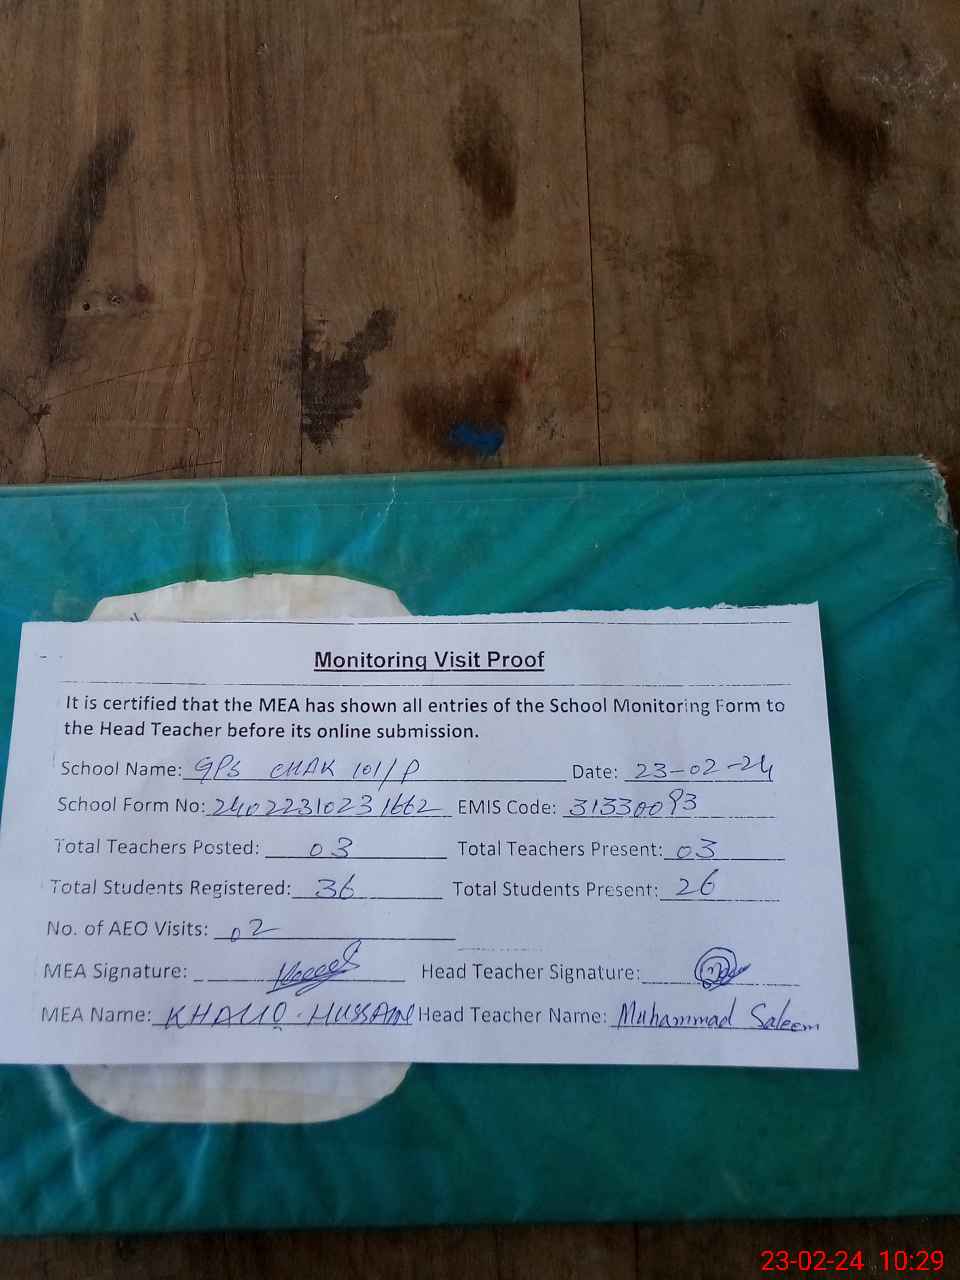 Monitoring Visit Proof
It is certified that the MEA has shown all entries of the School Monitoring Form to
the Head Teacher before its online submission.
School Name: GPS CHAK 101/P Date: 23-02-24
School Form No: 24022310231662 EMIS Code: 31330093
Total Teachers Posted: 03 Total Teachers Present: 03
Total Students Registered: 36 Total Students Present: 26
No. of AEO Visits: 02
MEA Signature: Head Teacher Signature:
MEA Name: KHALIQ. HUSSAIN Head Teacher Name: Muhammad Saleem
23-02-24 10:29